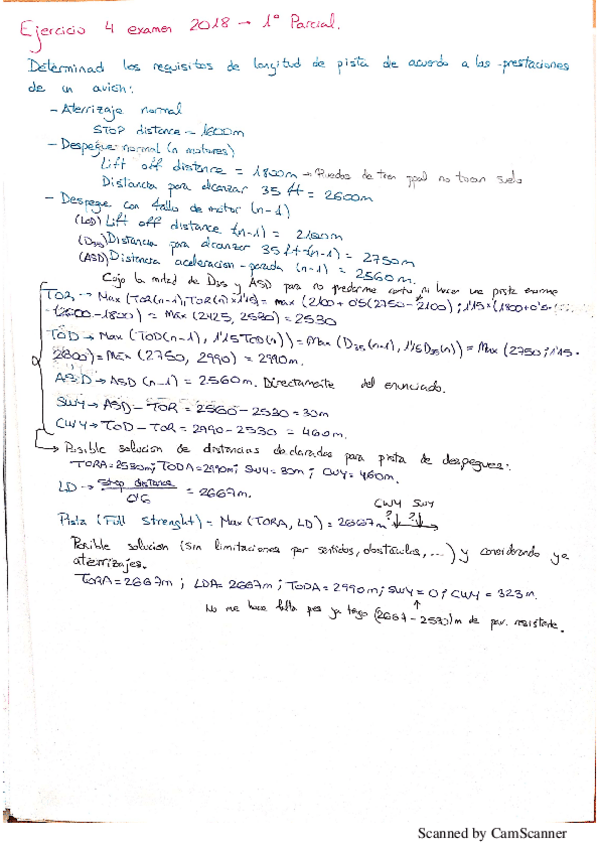 Ejercicio 4 examen 2018 → 1º Parcial.
Determinad los requisitos de longitud de pista de acuerdo a las prestaciones
de un avión:
- Aterrizaje normal
STOP distance - 1600m
- Despegue normal (n motores)
Lift off distance = 1800m → Ruedas de tren ppal no tocan suelo
Distancia para alcanzar 35 ft = 2600m
- Despegue con fallo de motor (n-1)
(LOD) Lift off distance (n-1) = 2100m
(D35) Distancia para alcanzar 35ft (n-1) = 2750m
(ASD) Distancia aceleración-parada (n-1) = 2560m.
Cojo la mitad de D35 y ASD para no quedarme corto ni hacer una pista enorme
TOR → Max (TOR(n-1), TOR(n)x1'15) = max (2100 + 0'5(2750-2100); 1'15*(1800+0'5·
·(2600-1800)) = Max (2425, 2530) = 2530
TOD → Max (TOD(n-1), 1'15 TOD(n)) = Max (D35(n-1), 1'15 D35(n)) = Max (2750; 1'15·
2600) = Max (2750, 2990) = 2990m.
ASD → ASD (n-1) = 2560m. Directamente del enunciado.
SWY → ASD - TOR = 2560 - 2530 = 30m
CWY → TOD - TOR = 2990 - 2530 = 460m.
→ Posible solución de distancias declaradas para pista de despegues:
TORA = 2530m; TODA = 2990m; SWY = 30m; CWY = 460m.
LD → Stop distance / 0'6 = 2667m.
CWY SWY
Pista (Full Strenght) = Max (TORA, LD) = 2667m ? ?
Posible solución (sin limitaciones por sentidos, obstáculos, ...) y considerando ya
aterrizajes.
TORA = 2667m; LDA = 2667m; TODA = 2990m; SWY = 0; CWY = 323m.
No me hace falta pues ya tengo (2667-2530)m de pav. resistente.
Scanned by CamScanner